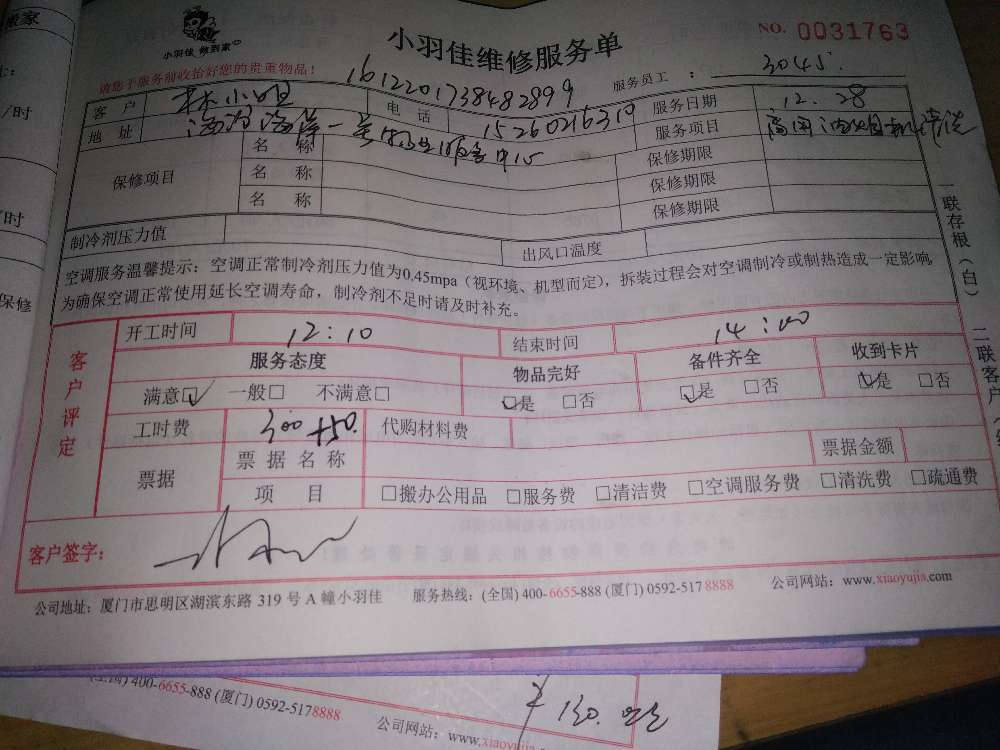 搬家
/时
/时
保修
小羽佳 做到家
小羽佳维修服务单
NO. 0031763
请您于服务前收拾好您的贵重物品!
161220173848 2899
服务员工 : 3045.
客户 林小姐 电话 15260216310 服务日期 12.28
地址 服务项目
保修项目 名称 保修期限
名称 保修期限
名称 保修期限
制冷剂压力值 出风口温度
空调服务温馨提示:空调正常制冷剂压力值为0.45mpa(视环境、机型而定),拆装过程会对空调制冷或制热造成一定影响
为确保空调正常使用延长空调寿命,制冷剂不足时请及时补充。
一联存根(白) 二联客户
客户评定
开工时间 12:10 结束时间 14:00
服务态度 物品完好 备件齐全 收到卡片
满意☑ 一般□ 不满意□ ☑是 □否 ☑是 □否 ☑是 □否
工时费 300+50. 代购材料费
票据 票据名称 票据金额
项目 □搬办公用品 □服务费 □清洁费 □空调服务费 □清洗费 □疏通费
客户签字:
公司地址:厦门市思明区湖滨东路 319 号 A 幢小羽佳 服务热线:(全国) 400-6655-888 (厦门) 0592-517 8888 公司网站:www.xiaoyujia.com
400-6655-888 (厦门) 0592-5178888 公司网站:www.xiaoyujia
¥130.